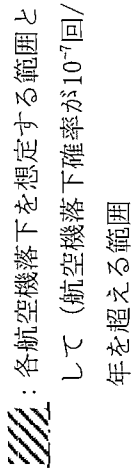 ：各航空機落下を想定する範囲と
して（航空機落下確率が10⁻⁷回/
年を超える範囲